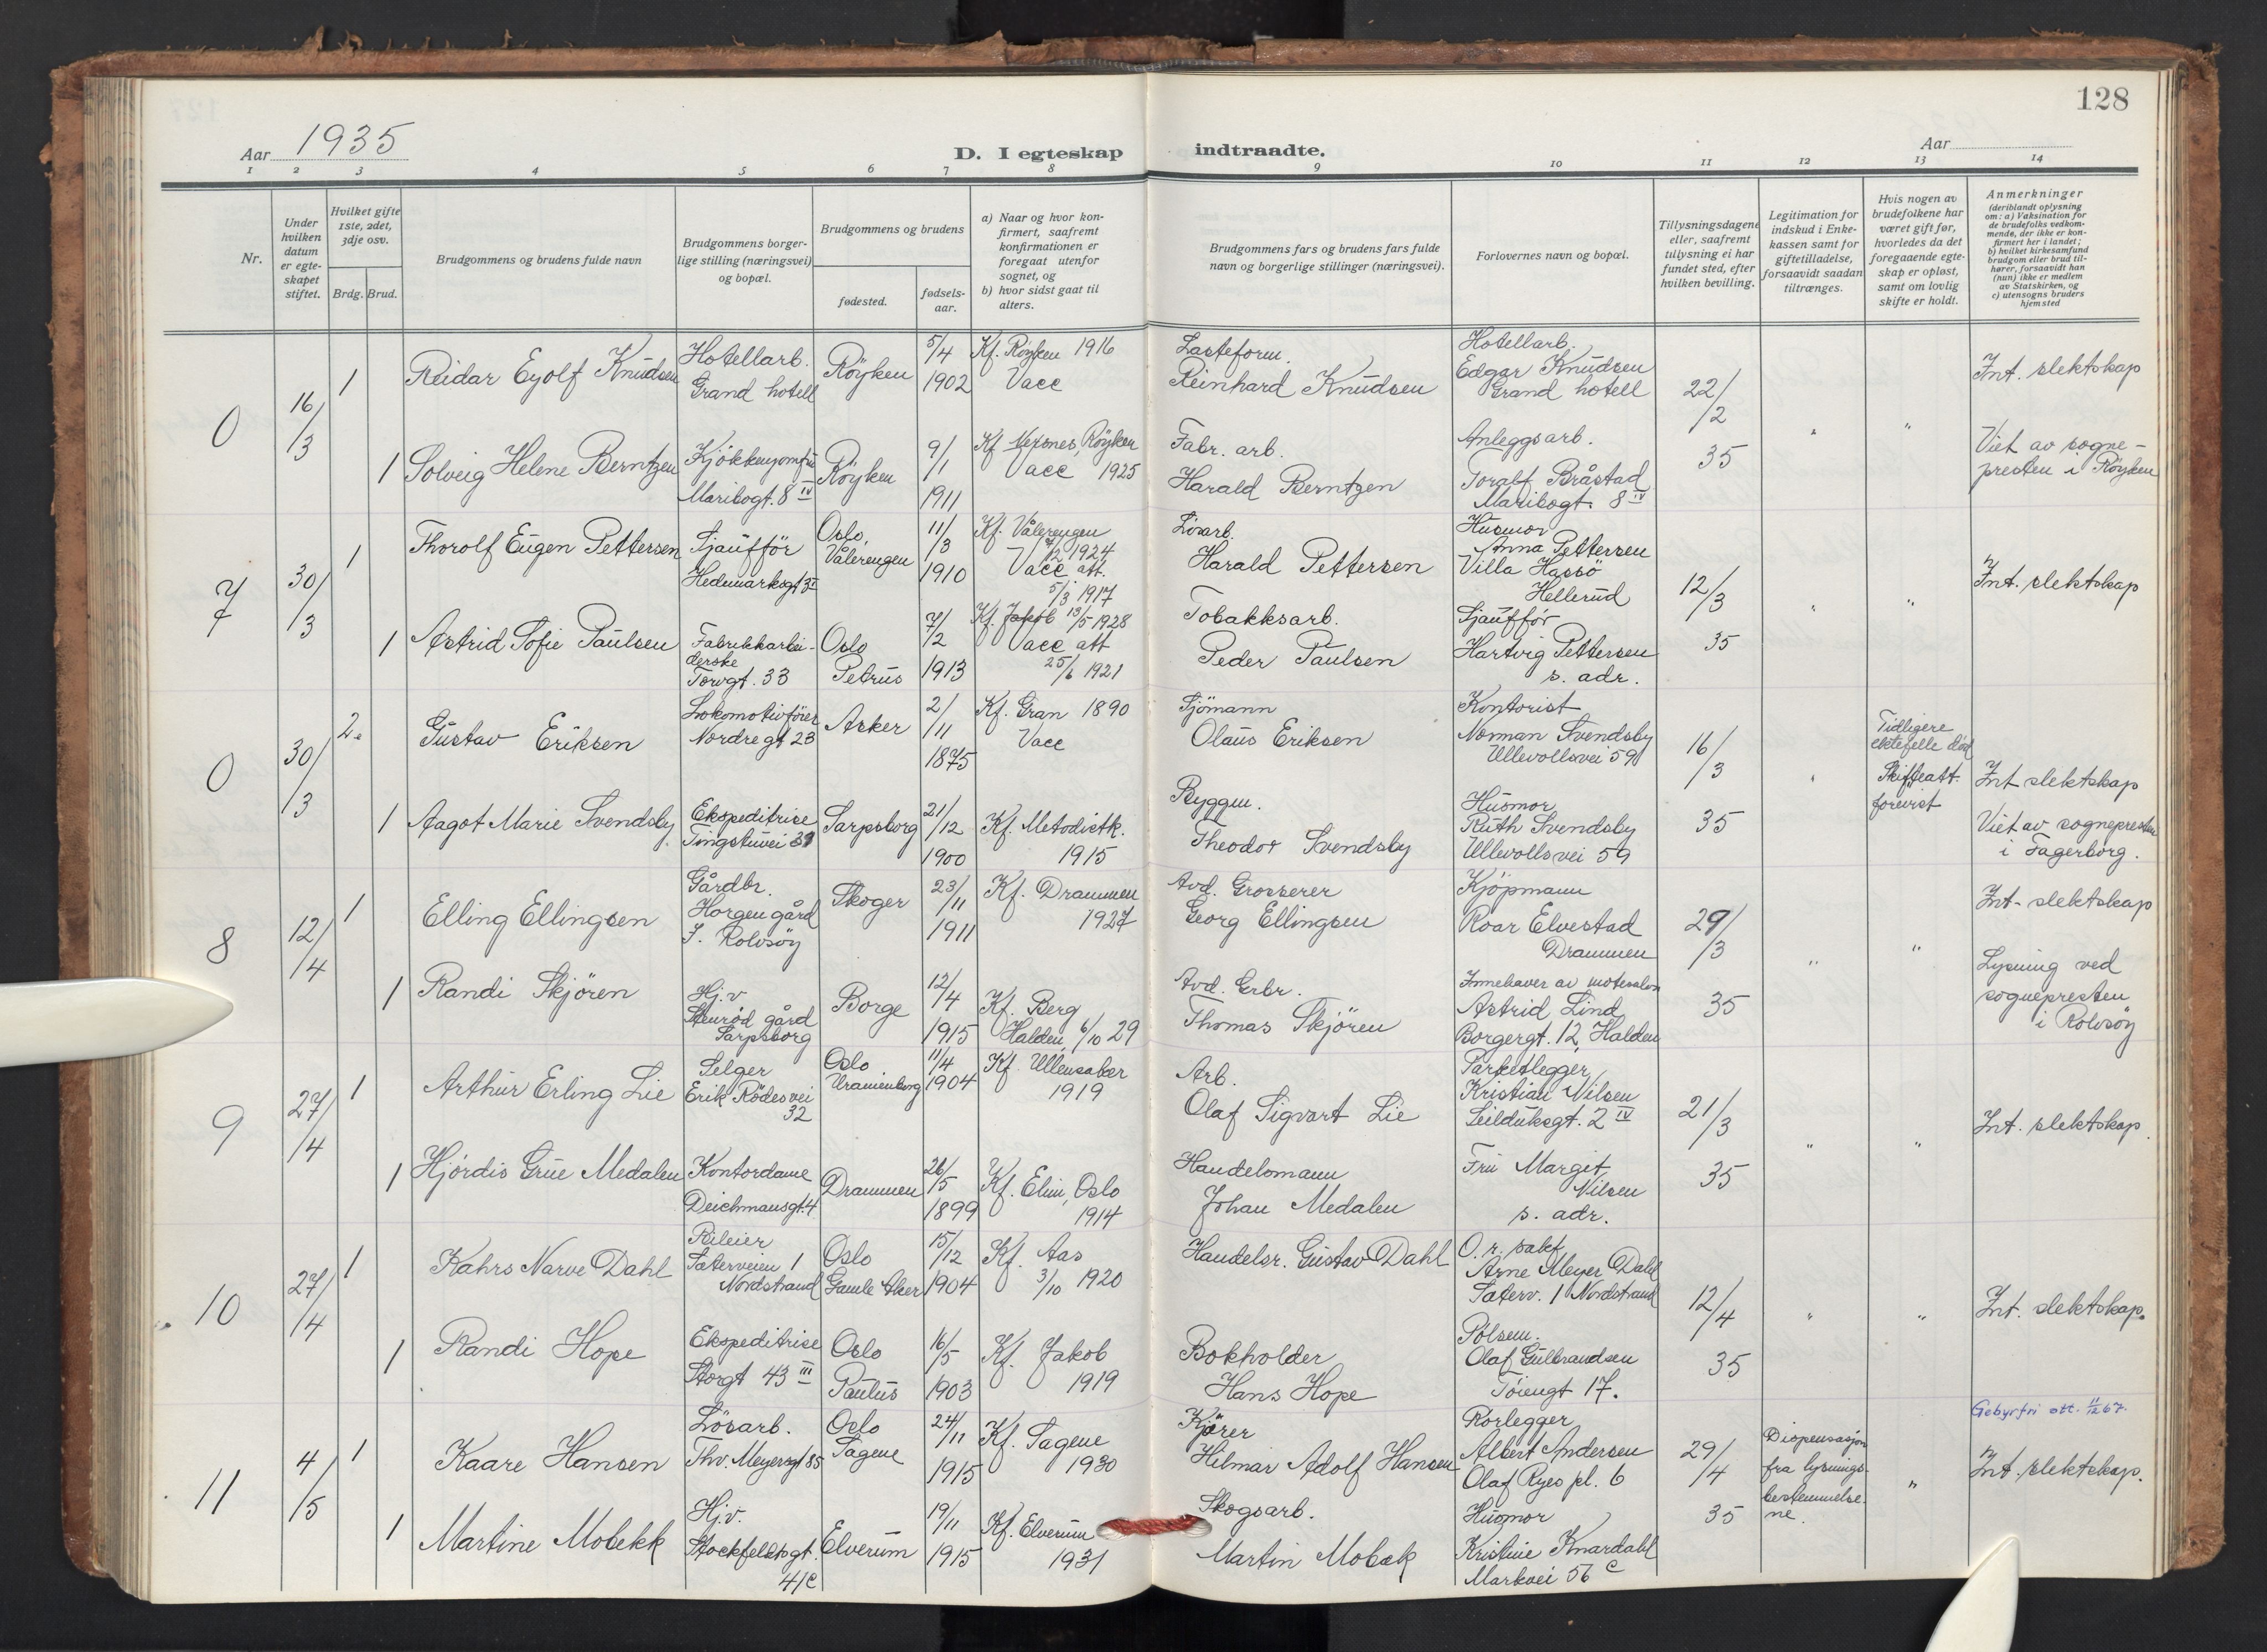 128
Aar 1935
D. I egteskap indtraadte.
Aar
1 2 3 4 5 6 7 8 9 10 11 12 13 14
Nr.
Under
hvilken
datum
er egte-
skapet
stiftet.
Hvilket gifte
1ste, 2det,
3dje osv.
Brdg. Brud.
Brudgommens og brudens fulde navn
Brudgommens borger-
lige stilling (næringsvei)
og bopæl.
Brudgommens og brudens
fødested.
fødsels-
aar.
a) Naar og hvor kon-
firmert, saafremt
konfirmationen er
foregaat utenfor
sognet, og
b) hvor sidst gaat til
alters.
Brudgommens fars og brudens fars fulde
navn og borgerlige stillinger (næringsvei).
Forlovernes navn og bopæl.
Tillysningsdagene
eller, saafremt
tillysning ei har
fundet sted, efter
hvilken bevilling.
Legitimation for
indskud i Enke-
kassen samt for
giftetilladelse,
forsaavidt saadan
tiltrænges.
Hvis nogen av
brudefolkene har
været gift før,
hvorledes da det
foregaaende egte-
skap er opløst,
samt om lovlig
skifte er holdt.
Anmerkninger
(deriblandt oplysning
om: a) Vaksination for
de brudefolks vedkom-
mende, der ikke er kon-
firmert her i landet;
b) hvilket kirkesamfund
brudgom eller brud til-
hører, forsaavidt han
(hun) ikke er medlem
av Statskirken, og
c) utensogns bruders
hjemsted
0
16/3
1
Reidar Eyolf Knudsen
Hotellarb.
Grand hotell
Röyken
5/4
1902
Kf. Röyken 1916
Vacc
Lasteform.
Reinhard Knudsen
Hotellarb.
Edgar Knudsen
Grand hotell
22/2
35
"
"
Int. slektskap
1
Solveig Helene Berntzen
Kjökkenjomfru
Maribogt. 8 IV
Röyken
9/1
1911
Kf Nersnes, Röyken
Vacc 1925
Fabr. arb.
Harald Berntzen
Anleggsarb.
Toralf Bråstad
Maribogt. 8 IV
Viet av sogne-
presten i Röyken
7
30/3
1
Thorolf Eugen Pettersen
Sjaufför
Hedemarksgt 3 II
Oslo,
Vålerengen
11/3
1910
Kf. Vålerengen
1924
Vacc att.
5/3 1917
Lösarb.
Harald Pettersen
Husmor
Anna Pettersen
Villa Hassö
Hellerud
12/3
35
"
"
Int. slektskap
1
Astrid Sofie Paulsen
Fabrikkarbei-
derske
Torvgt. 33
Oslo
Petrus
7/2
1913
Kf. Jakob 13/5 1928
Vacc att
25/6 1921
Tobakksarb.
Peder Paulsen
Sjaufför
Hartvig Pettersen
s. adr.
0
30/3
2.
Gustav Eriksen
Lokomotivförer
Nordregt 23
Asker
2/11
1875
Kf. Gran 1890
Vacc
Sjömann
Olaus Eriksen
Kontorist
Norman Svendsby
Ullevollsvei 59
16/3
35
"
Tidligere
ektefelle död
Skifteatt.
forevist
Int slektskap
1
Aagot Marie Svendsby
Ekspeditrise
Tingstuvei 31
Sarpsborg
21/12
1900
Kf. Metodistk.
1915
Byggm.
Theodor Svendsby
Husmor
Ruth Svendsby
Ullevollsvei 59
Viet av sognepresten
i Fagerborg.
8
12/4
1
Elling Ellingsen
Gårdbr.
Horgen gård
S. Rolvsöy
Skoger
23/11
1911
Kf. Drammen
1927
Avd. Grosserer
Georg Ellingsen
Kjöpmann
Roar Elvestad
Drammen
29/3
35
"
"
Int- slektskap
1
Randi Skjören
Hj.v
Stenröd gård
Sarpsborg
Borge
12/4
1915
Kf. Berg
Halden, 6/10 29
Avd. Grbr.
Thomas Skjören
Innehaver av motesalon
Astrid Lind
Borgergt. 12, Halden
Lysning ved
sognepresten
i Rolvsöy
9
27/4
1
Arthur Erling Lie
Selger
Erik Rödes vei
32
Oslo
Uranienborg
11/4
1904
Kf. Ullensaker
1919
Arb.
Olaf Sigvart Lie
Parketlegger
Kristian Nilsen
Seilduksgt. 2 IV
21/3
35
"
"
Int. slektskap.
1
Hjördis Grue Medalen
Kontordame
Deichmansgt. 4
Drammen
26/5
1899
Kf. Elim, Oslo
1914
Handelsmann
Johan Medalen
Fru Margit
Nilsen
s. adr.
10
27/4
1
Kahrs Narve Dahl
Bileier
Sæterveien 1
Nordstrand
Oslo
Gamle Aker
15/12
1904
Kf. Aas
3/10 1920
Handelsr. Gustav Dahl
O. r. sakf.
Arne Meyer Dahl
Sæterv. 1 Nordstrand
12/4
35
"
"
Int. slektskap.
1
Randi Hope
Ekspeditrise
Storgt 43 III
Oslo
Paulus
16/5
1903
Kf. Jakob
1919
Bokholder
Hans Hope
Pölsem.
Olaf Gulbrandsen
Töiengt 17.
Gebyrfri att. 11/12 67.
11
4/5
1
Kaare Hansen
Lösarb.
Thv. Meyersgt 85
Oslo
Sagene
24/11
1915
Kf. Sagene
1930
Kjörer
Hilmar Adolf Hansen
Rörlegger
Albert Andersen
Olaf Ryes pl. 6
29/4
35
Dispensasjon
fra lysnings-
bestemmelse-
ne.
"
Int. slektskap.
1
Martine Mobekk
Hj.v.
Stockfelthsgt.
41c
Elverum
19/11
1915
Kf. Elverum
1931
Skogsarb.
Martin Mobæk
Husmor
Kristine Knardahl
Markvei 56 c